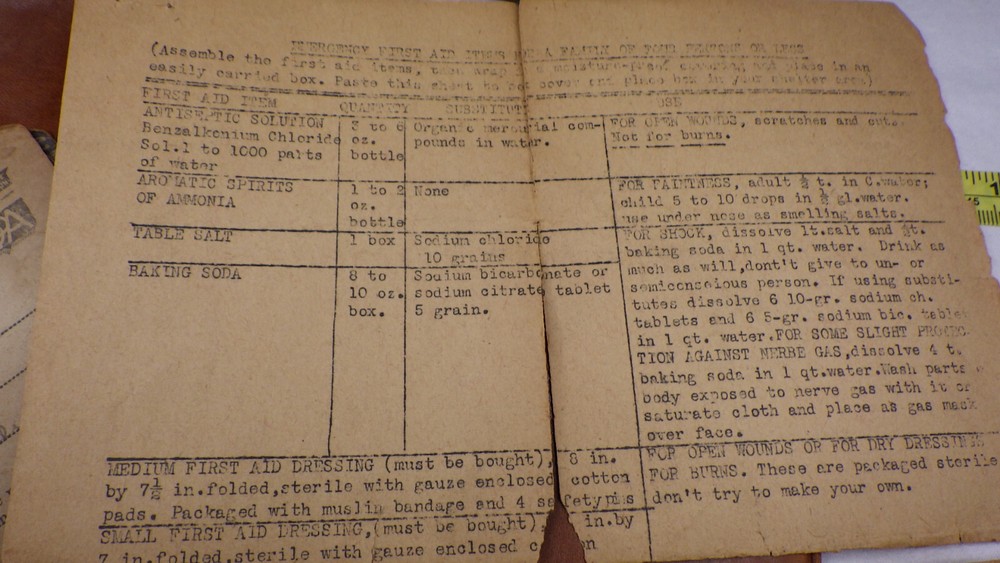 EMERGENCY FIRST AID ITEMS FOR A FAMILY OF FOUR PERSONS OR LESS
(Assemble the first aid items, then wrap in a moisture-proof covering and place in an
easily carried box. Paste this sheet to box cover and place box in your shelter area)
FIRST AID ITEM QUANTITY SUBSTITUTE USE
ANTISEPTIC SOLUTION
Benzalkonium Chloride
Sol.1 to 1000 parts
of water
3 to 6
oz.
bottle
Organic mercurial com-
pounds in water.
FOR OPEN WOUNDS, scratches and cuts.
Not for burns.
AROMATIC SPIRITS
OF AMMONIA
1 to 2
oz.
bottle
None
FOR FAINTNESS, adult ½ t. in C.water;
child 5 to 10 drops in ½ gl.water.
use under nose as smelling salts.
TABLE SALT
1 box
Sodium chloride
10 grains
FOR SHOCK, dissolve 1t.salt and ½t.
baking soda in 1 qt. water. Drink as
much as will,dont't give to un- or
semiconscious person. If using substi-
tutes dissolve 6 10-gr. sodium ch.
tablets and 6 5-gr. sodium bic. tablet
in 1 qt. water.FOR SOME SLIGHT PROTEC-
TION AGAINST NERBE GAS,dissolve 4 t.
baking soda in 1 qt.water.Wash parts
body exposed to nerve gas with it or
saturate cloth and place as gas mask
over face.
BAKING SODA
8 to
10 oz.
box.
Sodium bicarbonate or
sodium citrate tablet
5 grain.
MEDIUM FIRST AID DRESSING (must be bought), 8 in.
by 7½ in.folded,sterile with gauze enclosed cotton
pads. Packaged with muslin bandage and 4 safetypins
FOR OPEN WOUNDS OR FOR DRY DRESSINGS
FOR BURNS. These are packaged sterile
don't try to make your own.
SMALL FIRST AID DRESSING,(must be bought), in.by
7 in.folded,sterile with gauze enclosed
1